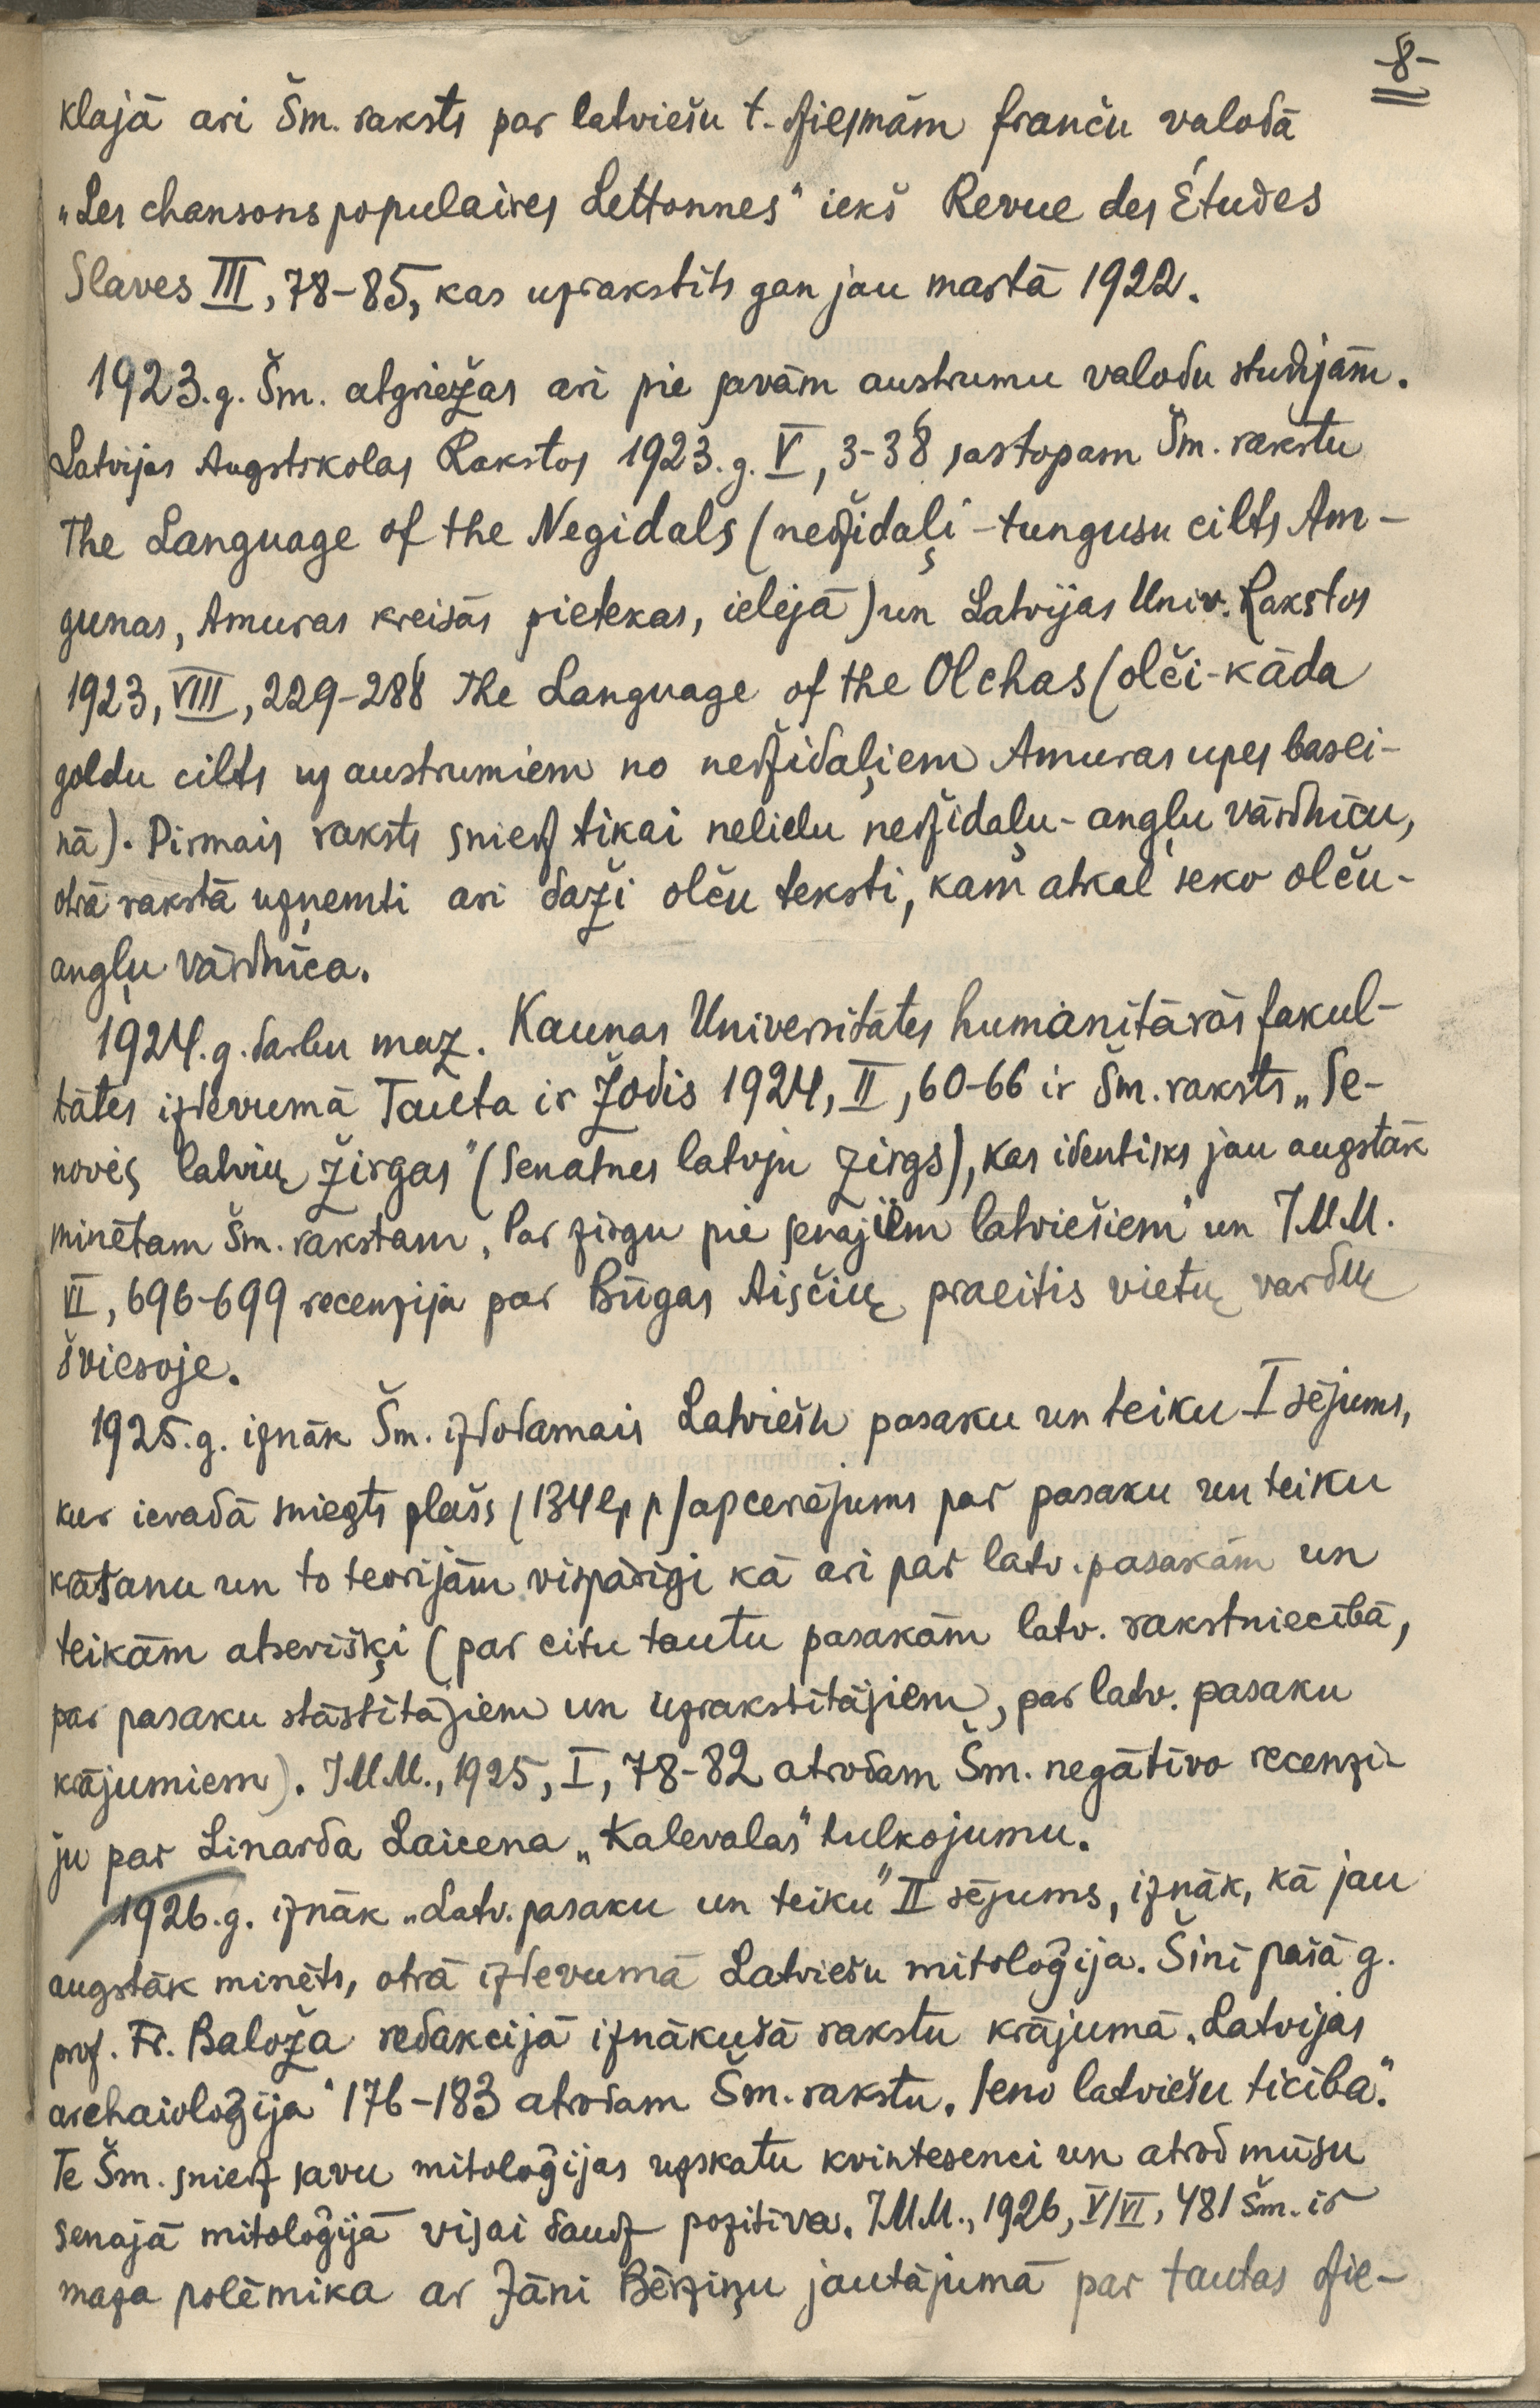 -8-
klajā ari Šm. raksts par latviešu t. dziesmām franču valodā
„Les chansons populaires Lettonnes" iekš Revue des Études
Slaves III, 78-85, kas uzrakstīts gan jau martā 1922.
1923.g. Šm. atgriežas ari pie savām austrumu valodu studijām.
Latvijas Augstskolas Rakstos 1923.g. V, 3-38 sastopam Šm. rakstu
The Language of the Negidals (nedžidaļi - tungusu cilts Am-
gunas, Amuras kreisās pietekas, ielejā) un Latvijas Univ. Rakstos
1923, VIII, 229-288 The Language of the Olchas (olči-kāda
goldu cilts uz austrumiem no nedžidaļiem Amuras upes basei-
nā). Pirmais raksts sniedz tikai nelielu nedžidaļu-angļu vārdnīcu,
otrā rakstā uzņemti ari daži olču teksti, kam atkal seko olču-
angļu vārdnīca.
1924.g. darbu maz. Kaunas Universitātes humānitārās fakul-
tātes izdevumā Tauta ir Žodis 1924, II, 60-66 ir Šm. raksts „Se-
novės latvių žirgas" (Senatnes latvju zirgs), kas identisks jau augstāk
minētam Šm. rakstam „Par zirgu pie senajiem latviešiem" un I.M.M.
VI, 696-699 recenzija par Būgas Aisčių praeitis vietų vardų
šviesoje.
1925.g. iznāk Šm. izdodamais Latviešu pasaku un teiku I sējums,
kur ievadā sniegts plašs (134 lpp) apcerējums par pasaku un teiku
krāšanu un to teorijām vispārīgi kā ari par latv. pasakām un
teikām atsevišķi (par citu tautu pasakām latv. rakstniecībā,
par pasaku stāstītājiem un uzrakstītājiem, par latv. pasaku
krājumiem). I.M.M., 1925, I, 78-82 atrodam Šm. negātīvo recenzi-
ju par Linarda Laicena „Kalevalas" tulkojumu.
1926.g. iznāk „Latv. pasaku un teiku" II sējums, iznāk, kā jau
augstāk minēts, otrā izdevumā Latviešu mitoloģija. Šinī pašā g.
prof. Fr. Baloža redakcijā iznākušā rakstu krājumā „Latvijas
archaioloģija" 176-183 atrodam Šm. rakstu „Seno latviešu ticība".
Te Šm. sniedz savu mitoloģijas uzskatu kvintesenci un atrod mūsu
senajā mitoloģijā visai daudz pozitīva. I.M.M., 1926, V/VI, 481 Šm. ir
maza polēmika ar Jāni Bērziņu jautājumā par tautas dzie-